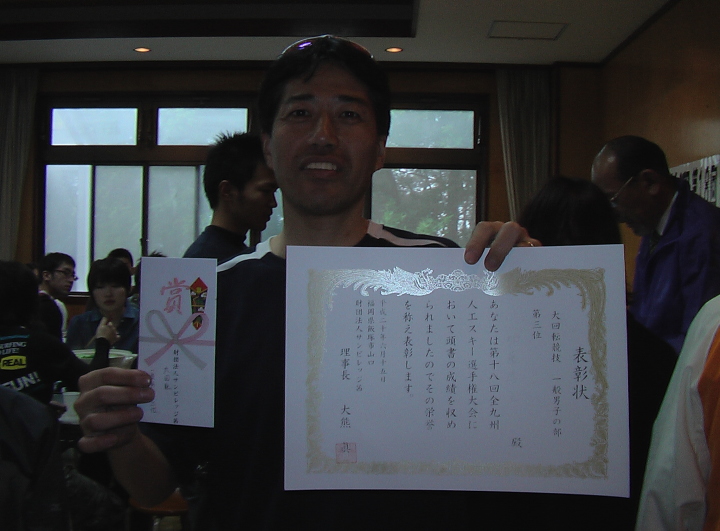 賞
財団法人サンビレッジ茜
大回転
表彰状
大回転競技 一般男子の部
第三位
殿
あなたは第十八回全九州
人工スキー選手権大会に
おいて頭書の成績を収め
られましたのでその栄誉
を称え表彰します。
平成二十年六月十五日
福岡県飯塚市山口
財団法人サンビレッジ茜
理事長 大熊
SURFING
LIFE!
REAL
FUN!